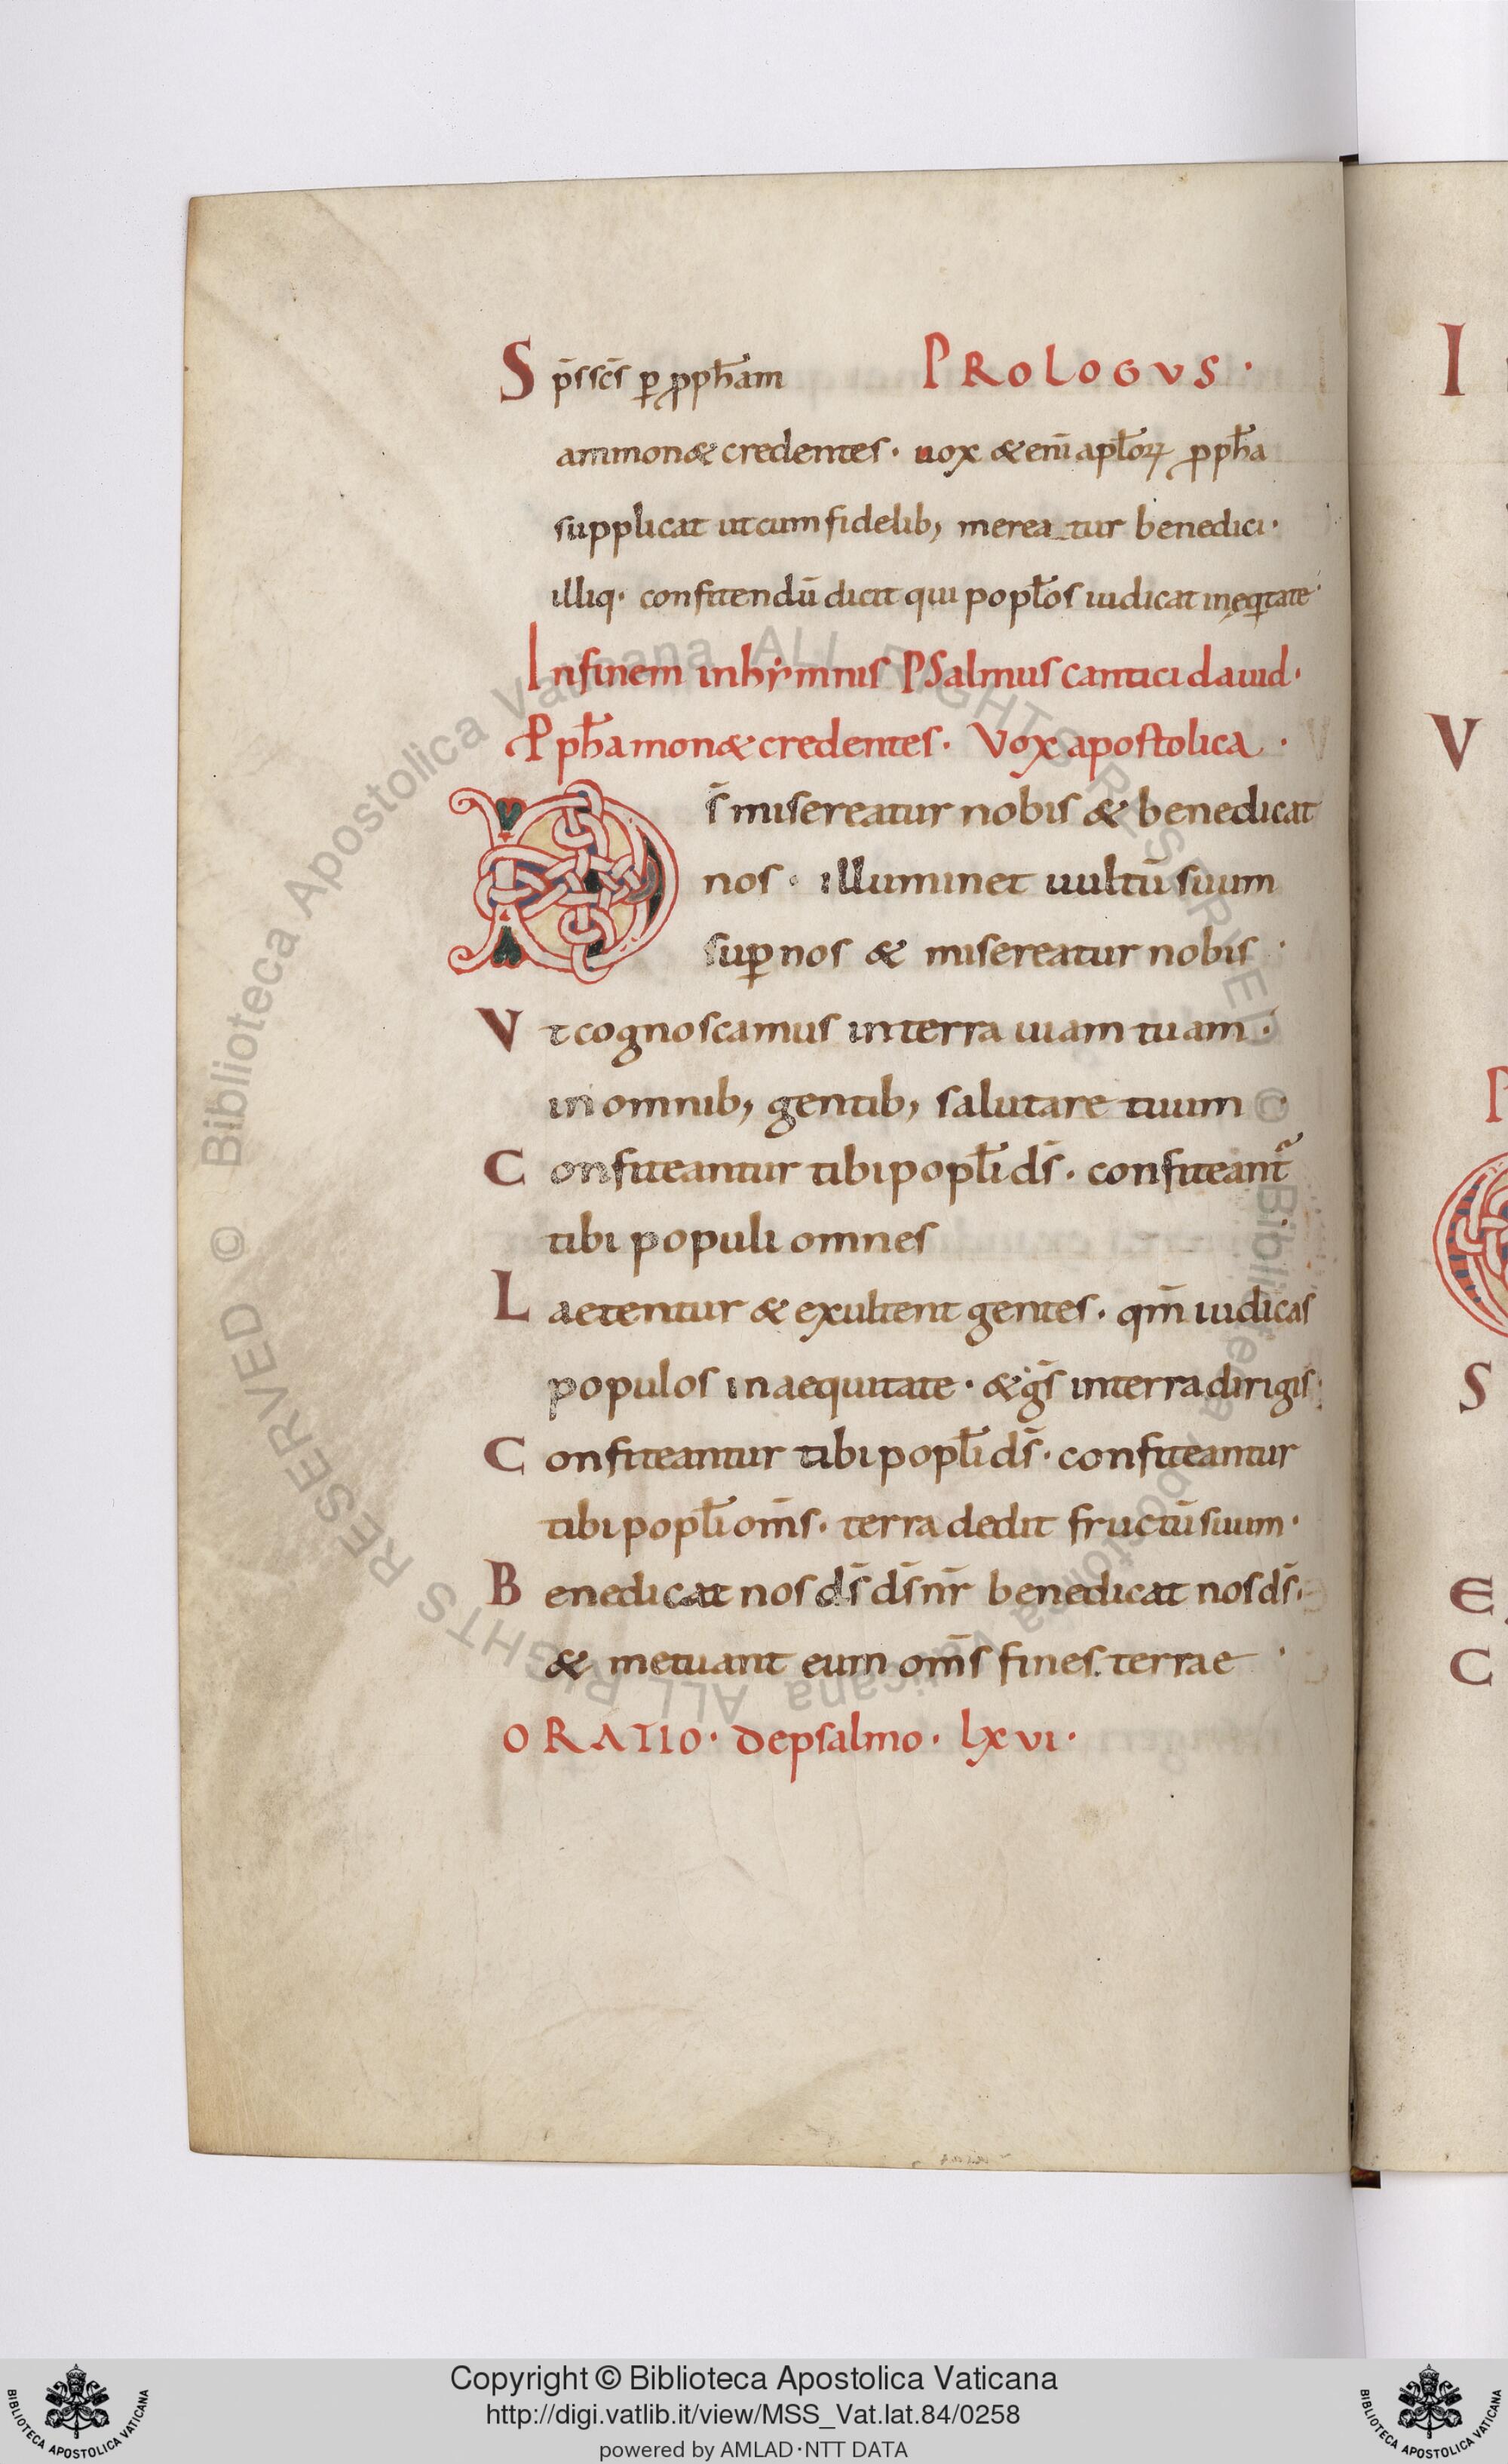 S p̄s sc̄s ꝑ ꝓph̄am PROLOGVS ·
ammon& credentes · uox & eni̅ apl̄oꝝ ꝓph̄a
supplicat ut cum fidelib; mereatur benedici ·
illiq· confitendū dicit qui popl̄os iudicat in ęq̅tate ·
In finem in hẏmnis PSalmus cantici dauid ·
Ꝓph̄a mon& credentes · Vox apostolica ·
D s̄ misereatur nobis & benedicat
nos · illuminet uultū suum
suꝑ nos & misereatur nobis ·
V t cognoscamus in terra uiam tuam ·
in omnib; gentib; salutare tuum ·
C onfiteantur tibi popl̄i ds̄ · confiteant᷑
tibi populi omnes
L aetentur & exultent gentes · qm̄ iudicas
populos in aequitate · & g̈s̄ in terra dirigis ·
C onfiteantur tibi popl̄i ds̄ · confiteantur
tibi popl̄i om̄s · terra dedit fructū suum ·
B enedicat nos ds̄ ds̄ nr̄ benedicat nos ds̄ ·
& metuant eum om̄s fines terrae ·
ORATIO · de psalmo · lxvi ·
I
V
P
S
E
C
© Biblioteca Apostolica Vaticana ALL RIGHTS RESERVED © Biblioteca Apostolica Vaticana ALL RIGHTS RESERVED
Copyright © Biblioteca Apostolica Vaticana
http://digi.vatlib.it/view/MSS_Vat.lat.84/0258
powered by AMLAD·NTT DATA
BIBLIOTECA APOSTOLICA VATICANA
BIBLIOTECA APOSTOLICA VATICANA